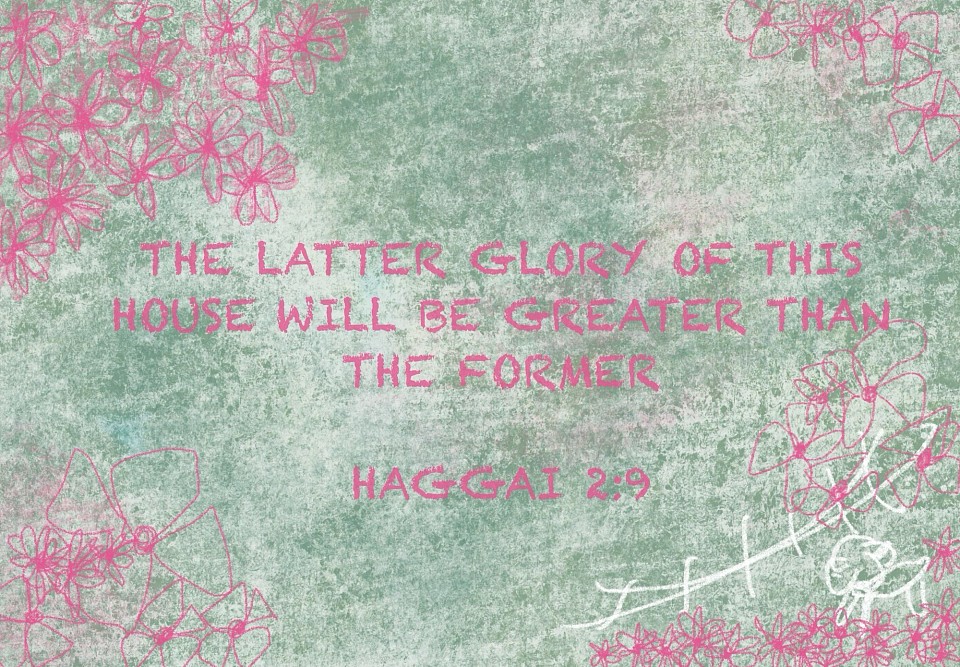 THE LATTER GLORY OF THIS
HOUSE WILL BE GREATER THAN
THE FORMER
HAGGAI 2:9